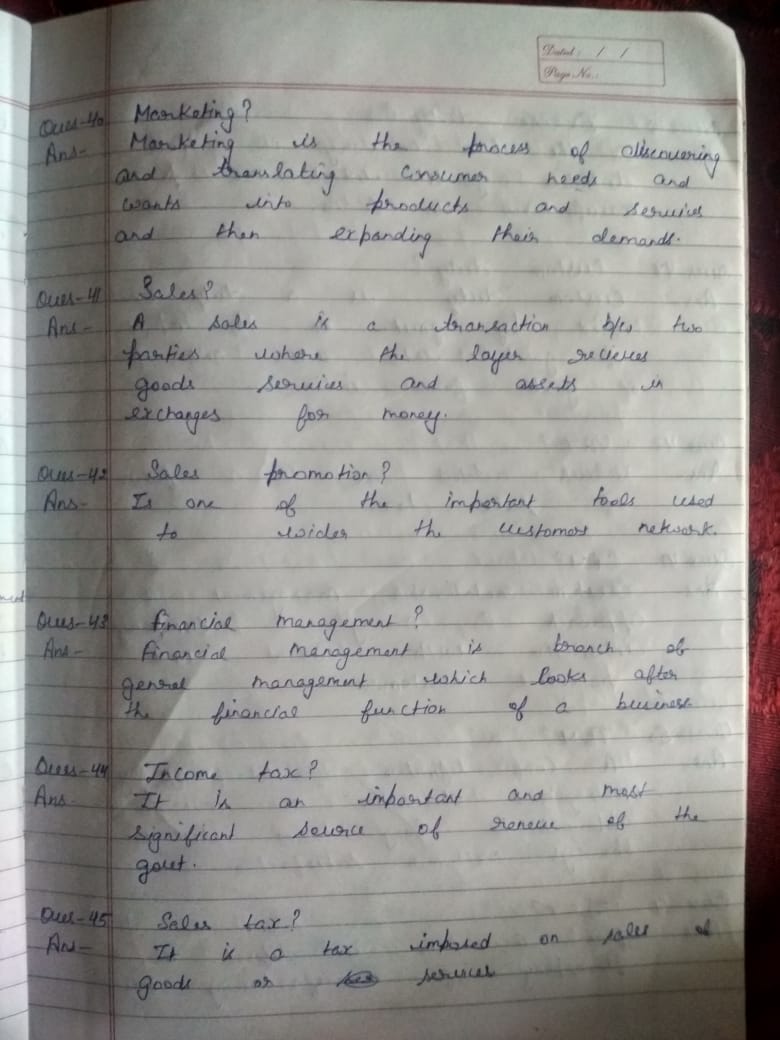 Dated: / /
Page No.:
Ques-40 Marketing?
Ans- Marketing is the process of discovering
and translating consumer needs and
wants into products and services
and then expanding their demands.
Ques-41 Sales?
Ans- A sales is a transaction b/w two
parties where the layer recieves
goods services and assets in
exchanges for money.
Ques-42 Sales promotion?
Ans- Is one of the important tools used
to wider the customers network.
Ques-43 financial management?
Ans- financial management is branch of
genral management which looks after
the financial function of a business
Ques-44 Income tax?
Ans- It is an important and most
significant source of reneue of the
govt.
Ques-45 Sales tax?
Ans- It is a tax imposed on sales of
goods or services